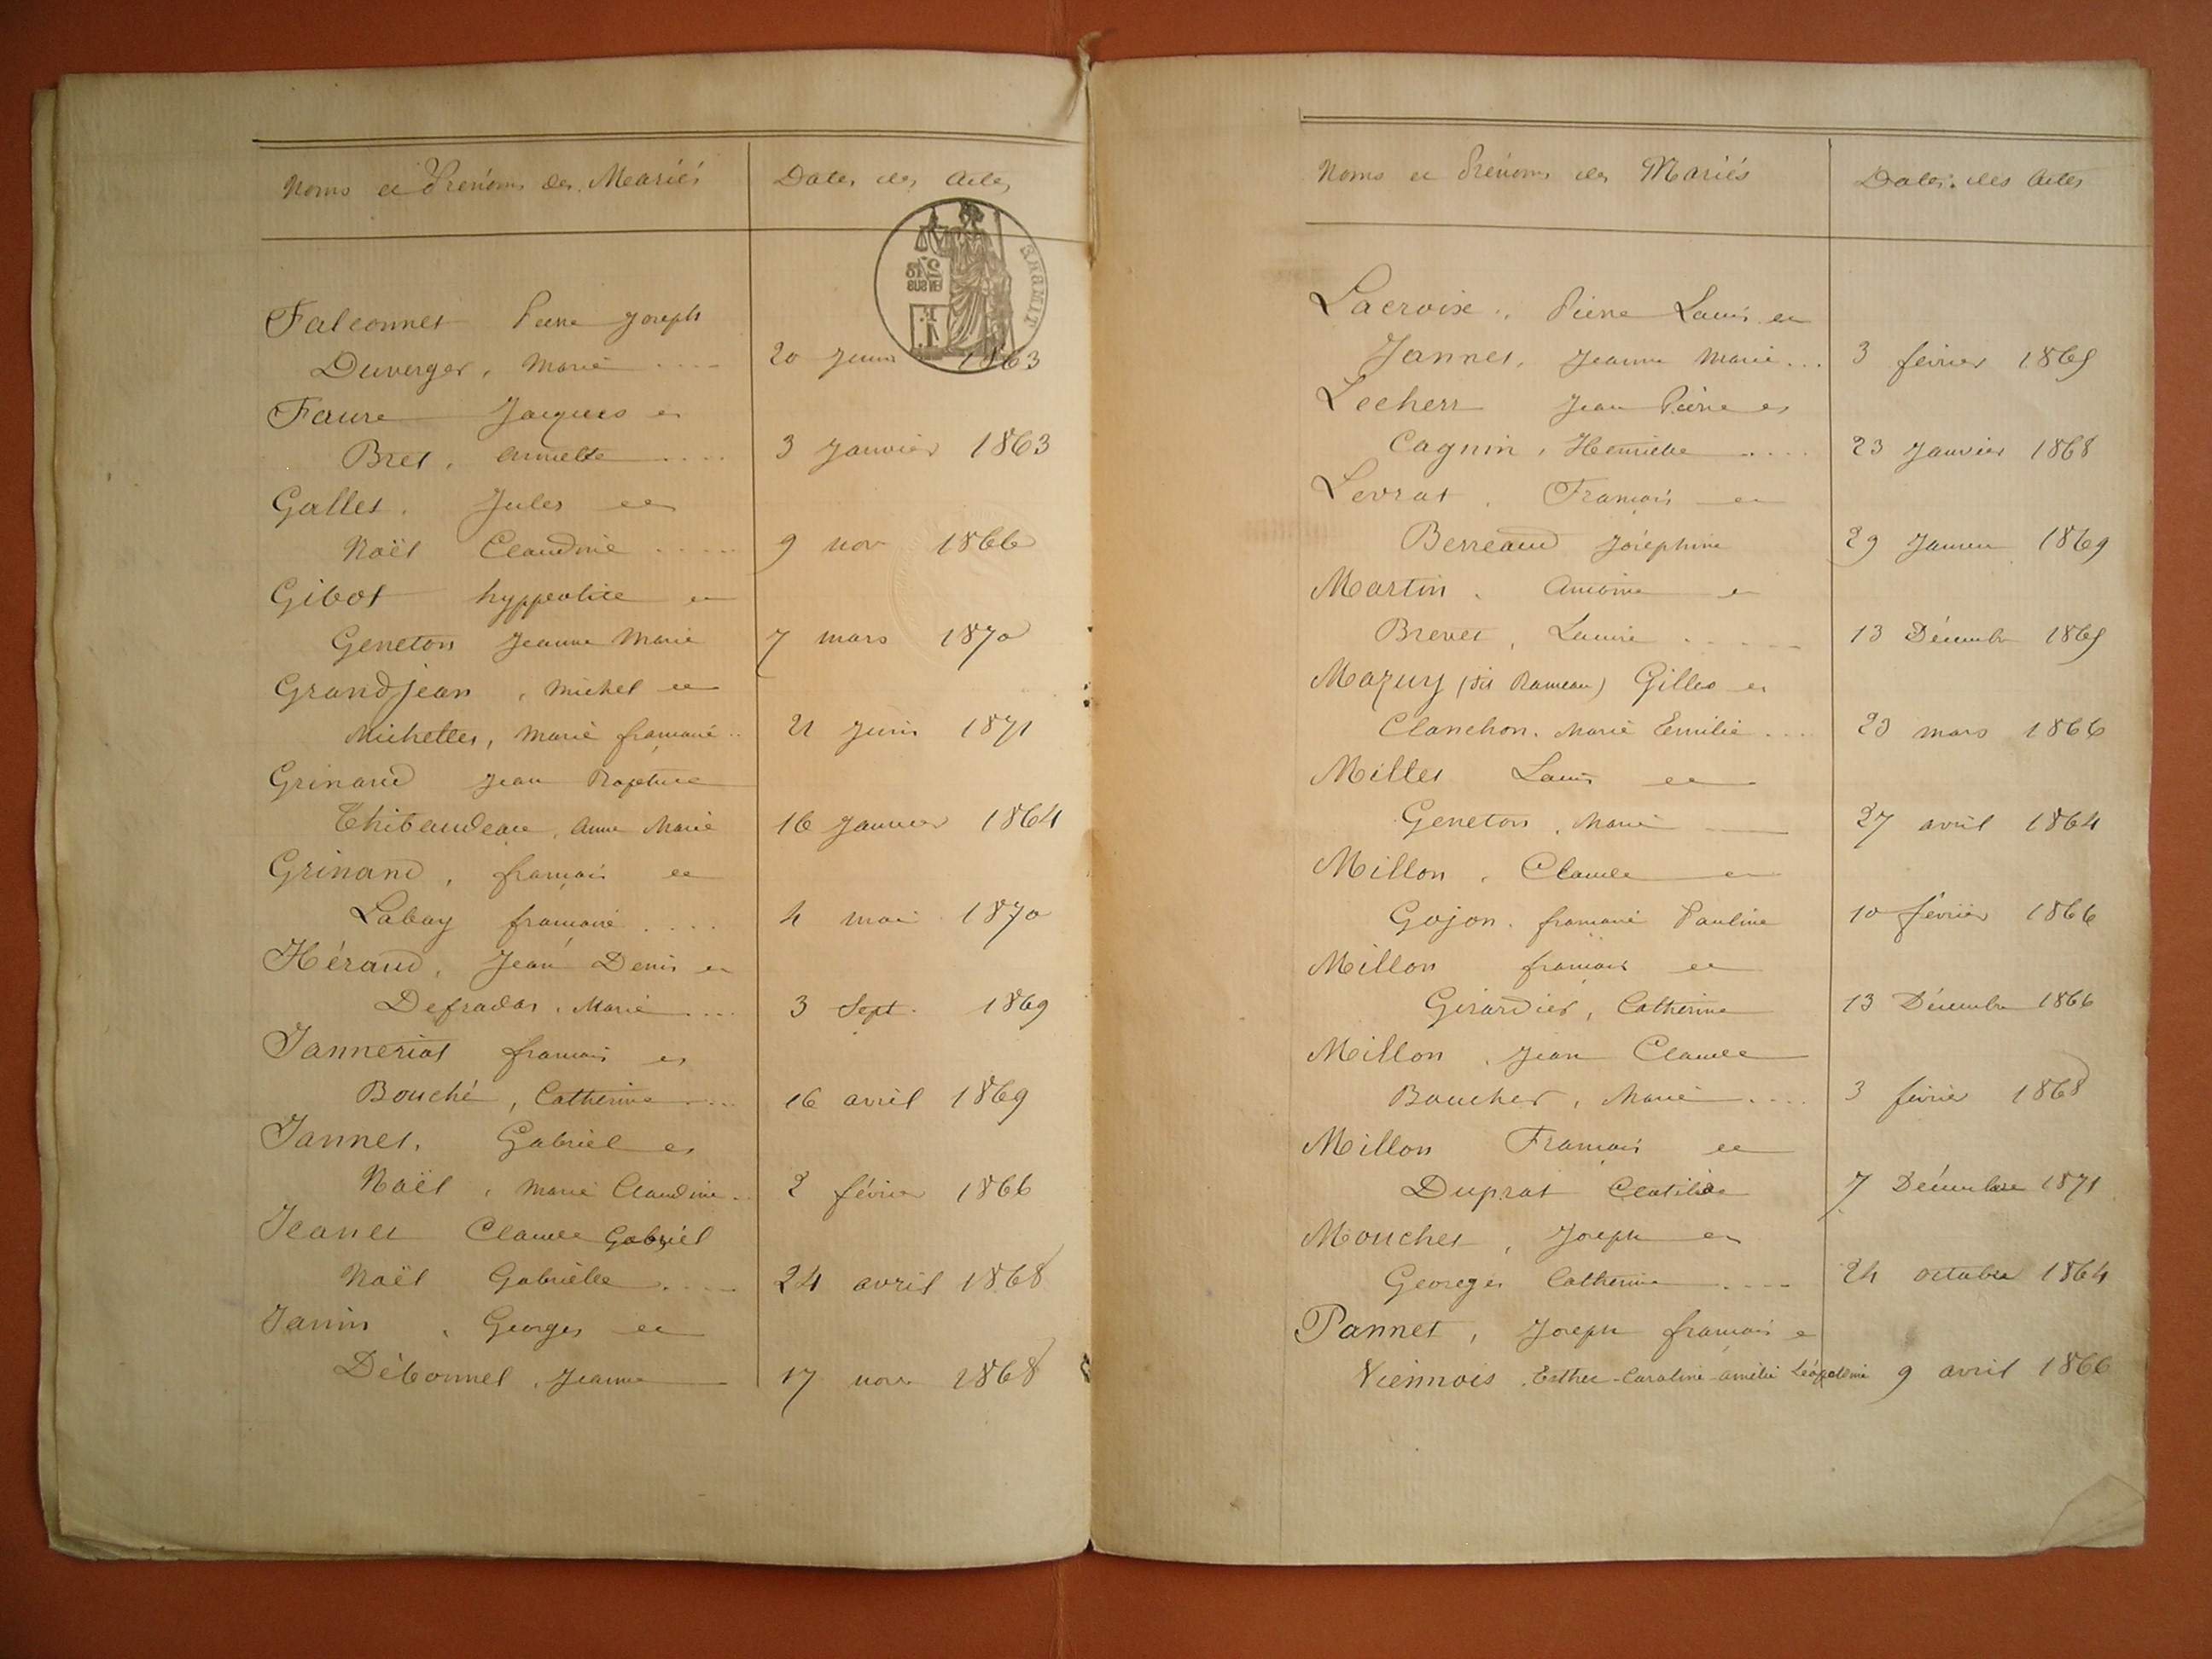 Noms et Prénoms des Mariés
Dates des Actes
TIMBRE
2/10
EN SUS
1F.
Falconnet Pierre Joseph
Duverger, Marie .... 20 Juin 1863
Faure Jacques et
Bret, Annette .... 3 Janvier 1863
Gallet. Jules et
Noël Claudine ..... 9 nov 1866
Gibot hyppolite et
Geneton Jeanne Marie 7 mars 1870
Grandjean, Michel et
Michelles, Marie françoise .. 21 Juin 1871
Grinand Jean Baptiste
Thibaudeau, Anne Marie 16 Janvier 1864
Grinand, françois et
Labay françoise .... 4 mai 1870
Héraud, Jean Denis et
Defradas, Marie .... 3 Sept. 1869
Janneriat françois et
Bouché, Catherine .... 16 avril 1869
Jannet, Gabriel et
Noël, Marie Claudine .. 2 février 1866
Jeanet Claude Gabriel
Noël Gabrielle .... 24 avril 1868
Janin, Georges et
Débonnel, Jeanne 17 nov 1868
Noms et Prénoms des Mariés
Dates des Actes
Lacroix, Pierre Louis et
Jannet, Jeanne Marie ... 3 février 1869
Lecherr Jean Pierre et
Cagnin, Henriette .... 23 Janvier 1868
Levrat, François et
Berreaud Joséphine 29 Janvier 1869
Martin, Antoine et
Brevet, Louise ..... 13 Décembre 1869
Mazuy (dit Rameau) Gilles et
Clanchon, Marie Emilie .... 23 mars 1866
Millet Louis et
Geneton, Marie 27 avril 1864
Millon, Claude et
Gojon, françoise Pauline 10 février 1866
Millon françois et
Girardier, Catherine 13 Décembre 1866
Millon, Jean Claude
Boucher, Marie .... 3 février 1868
Millon François et
Duprat Clotilde 7 Décembre 1871
Mouchet, Joseph et
Georges Catherine .... 24 octobre 1864
Pannet, Joseph françois et
Viennois, Esther-Caroline-Amélie Léopoldine 9 avril 1866